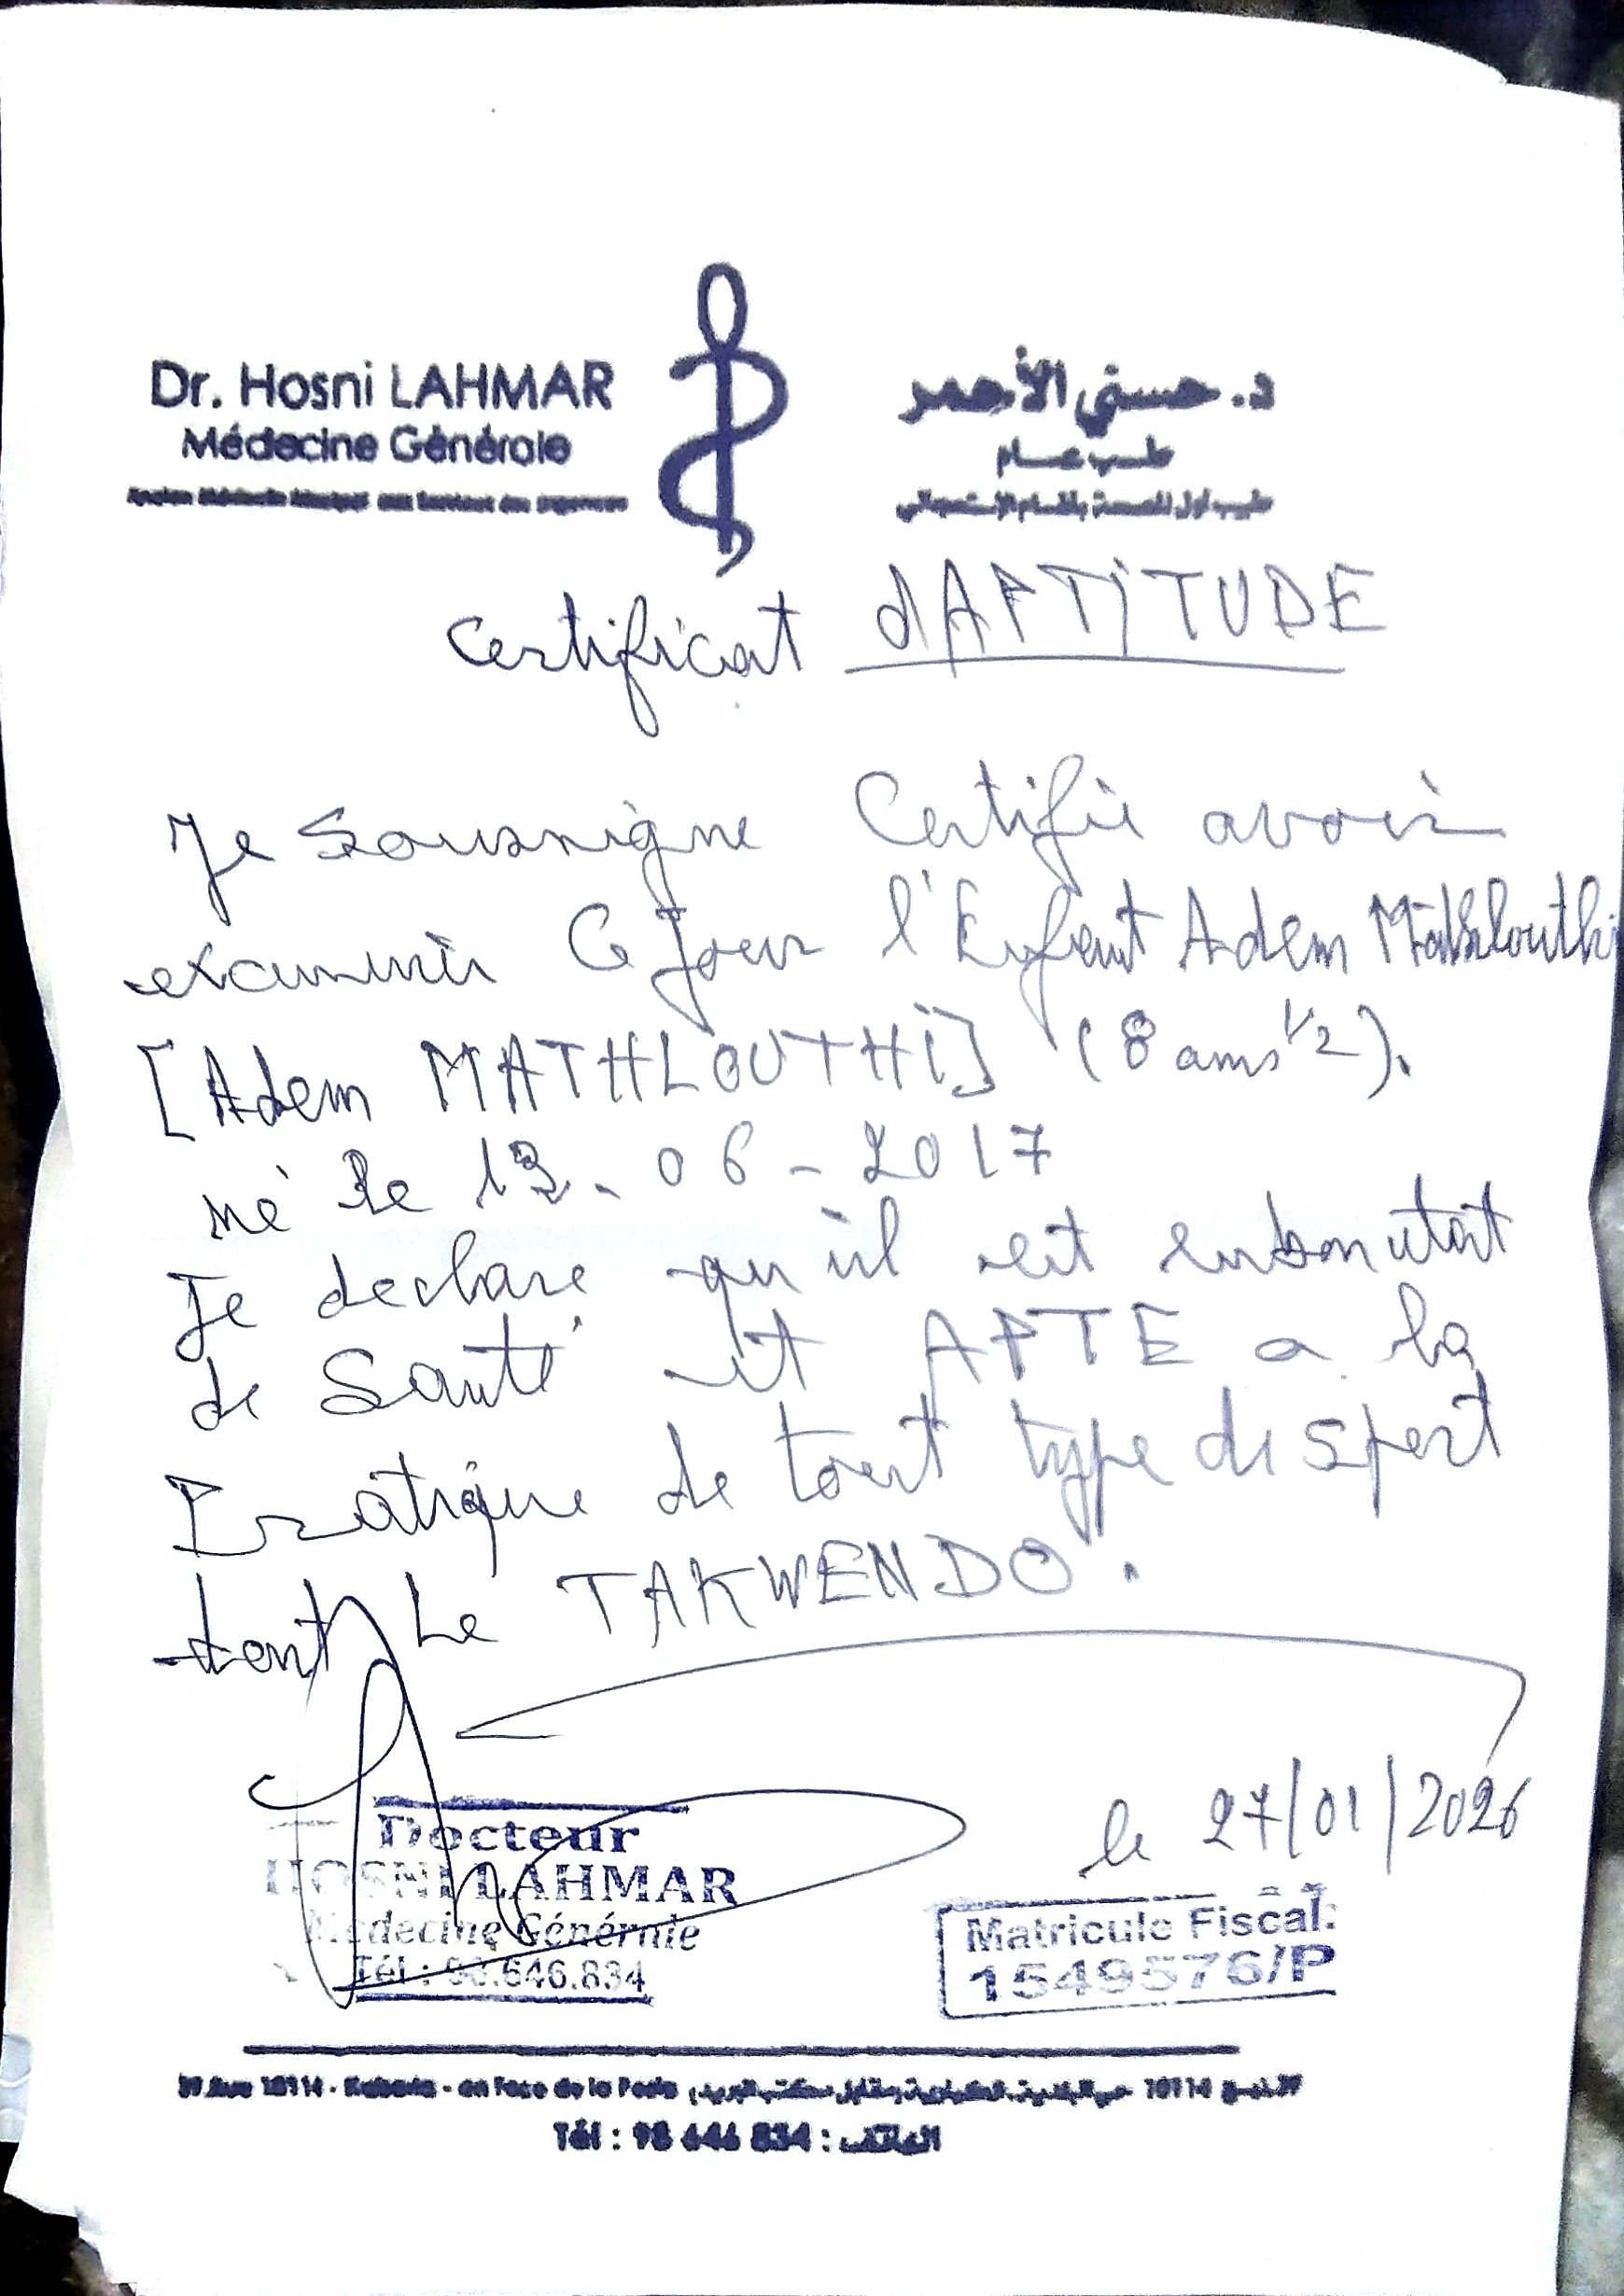 Dr. Hosni LAHMAR
Médecine Générale
د. حسني الأحمر
طب عام
طبيب أول للصحة بأقسام الإستعجالي
Certificat dAPTiTUDE
Je soussigne certifie avoir
examiner ce jour l'Enfant Adem Mathlouthi
[Adem MATHLOUTHi] (8 ans 1/2).
né le 06-2017
Je declare qu'il est en bon etat
de Santé et APTE a la
Pratique de tout type de sport
dont Le TAKWENDO.
le 27/01/2026
Docteur
HOSNI LAHMAR
Médecine Générale
Tél : 98.646.834
Matricule Fiscal:
1549576/P
en Face de la Poste
Tél : 98 646 834 : الهاتف